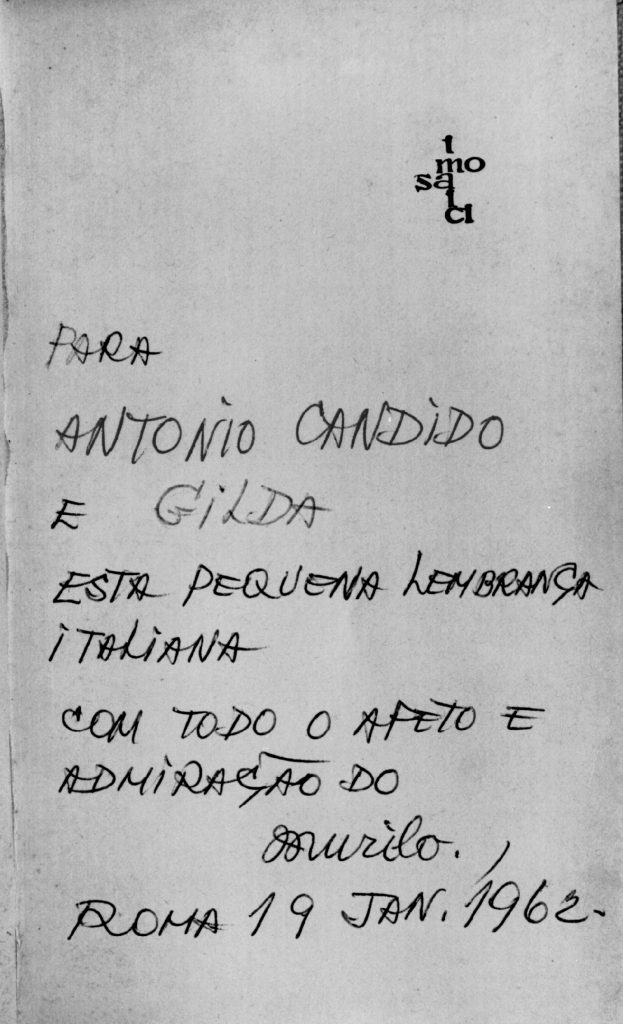 i
mo
sa
i
ci
PARA
ANTONIO CANDIDO
E GILDA
ESTA PEQUENA LEMBRANÇA
ITALIANA
COM TODO O AFETO E
ADMIRAÇÃO DO
Murilo.,
ROMA 19 JAN. 1962.